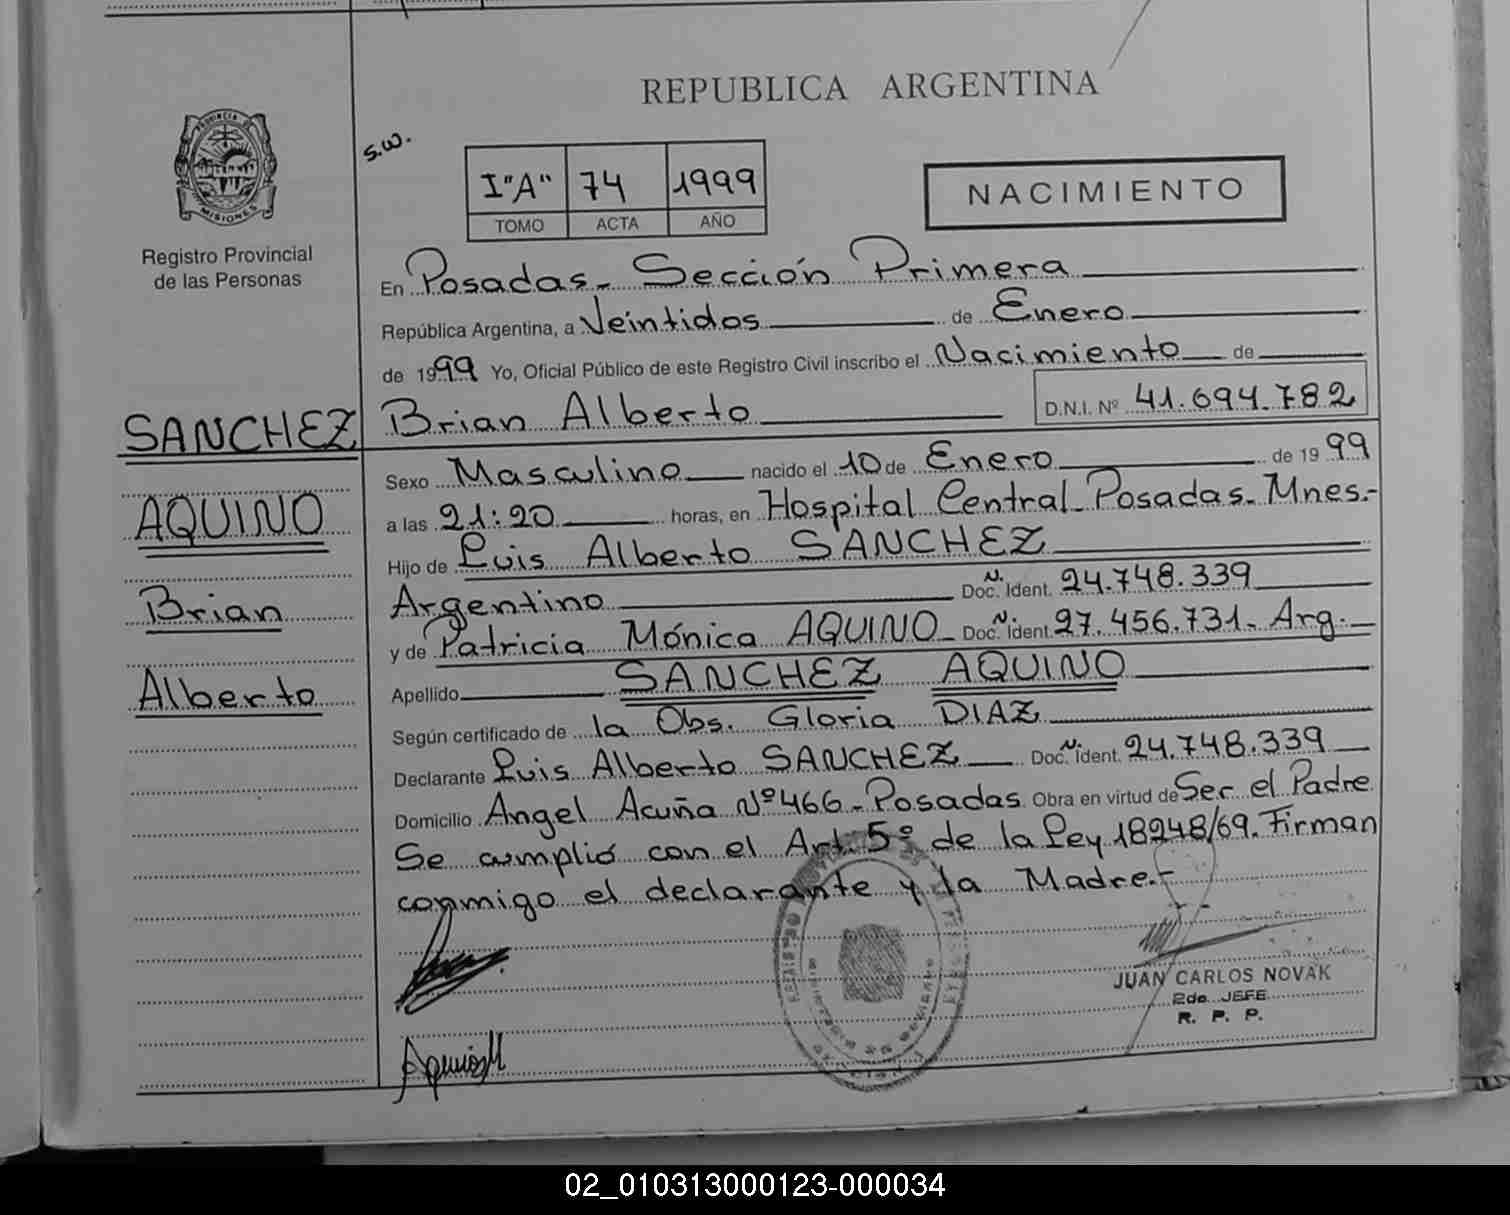 REPUBLICA ARGENTINA
S.W.
I"A" 74 1999
TOMO ACTA AÑO
NACIMIENTO
PROVINCIA DE
MISIONES
Registro Provincial
de las Personas
En Posadas - Sección Primera
República Argentina, a Veintidos de Enero
de 1999 Yo, Oficial Público de este Registro Civil inscribo el Nacimiento de
Brian Alberto D.N.I. Nº 41.694.782
SANCHEZ
AQUINO
Brian
Alberto
Sexo Masculino nacido el 10 de Enero de 1999
a las 21:20 horas, en Hospital Central - Posadas - Mnes.-
Hijo de Luis Alberto SANCHEZ
Argentino Doc. N. Ident. 24.748.339
y de Patricia Mónica AQUINO Doc. N. Ident. 27.456.731 - Arg.
Apellido SANCHEZ AQUINO
Según certificado de la Obs. Gloria DIAZ
Declarante Luis Alberto SANCHEZ Doc. N. Ident. 24.748.339
Domicilio Angel Acuña Nº 466 - Posadas Obra en virtud de Ser el Padre
Se cumplió con el Art. 5º de la Ley 18248/69. Firman
conmigo el declarante y la Madre.-
JUAN CARLOS NOVAK
2do. JEFE
R. P. P.
Aquino M
02_010313000123-000034